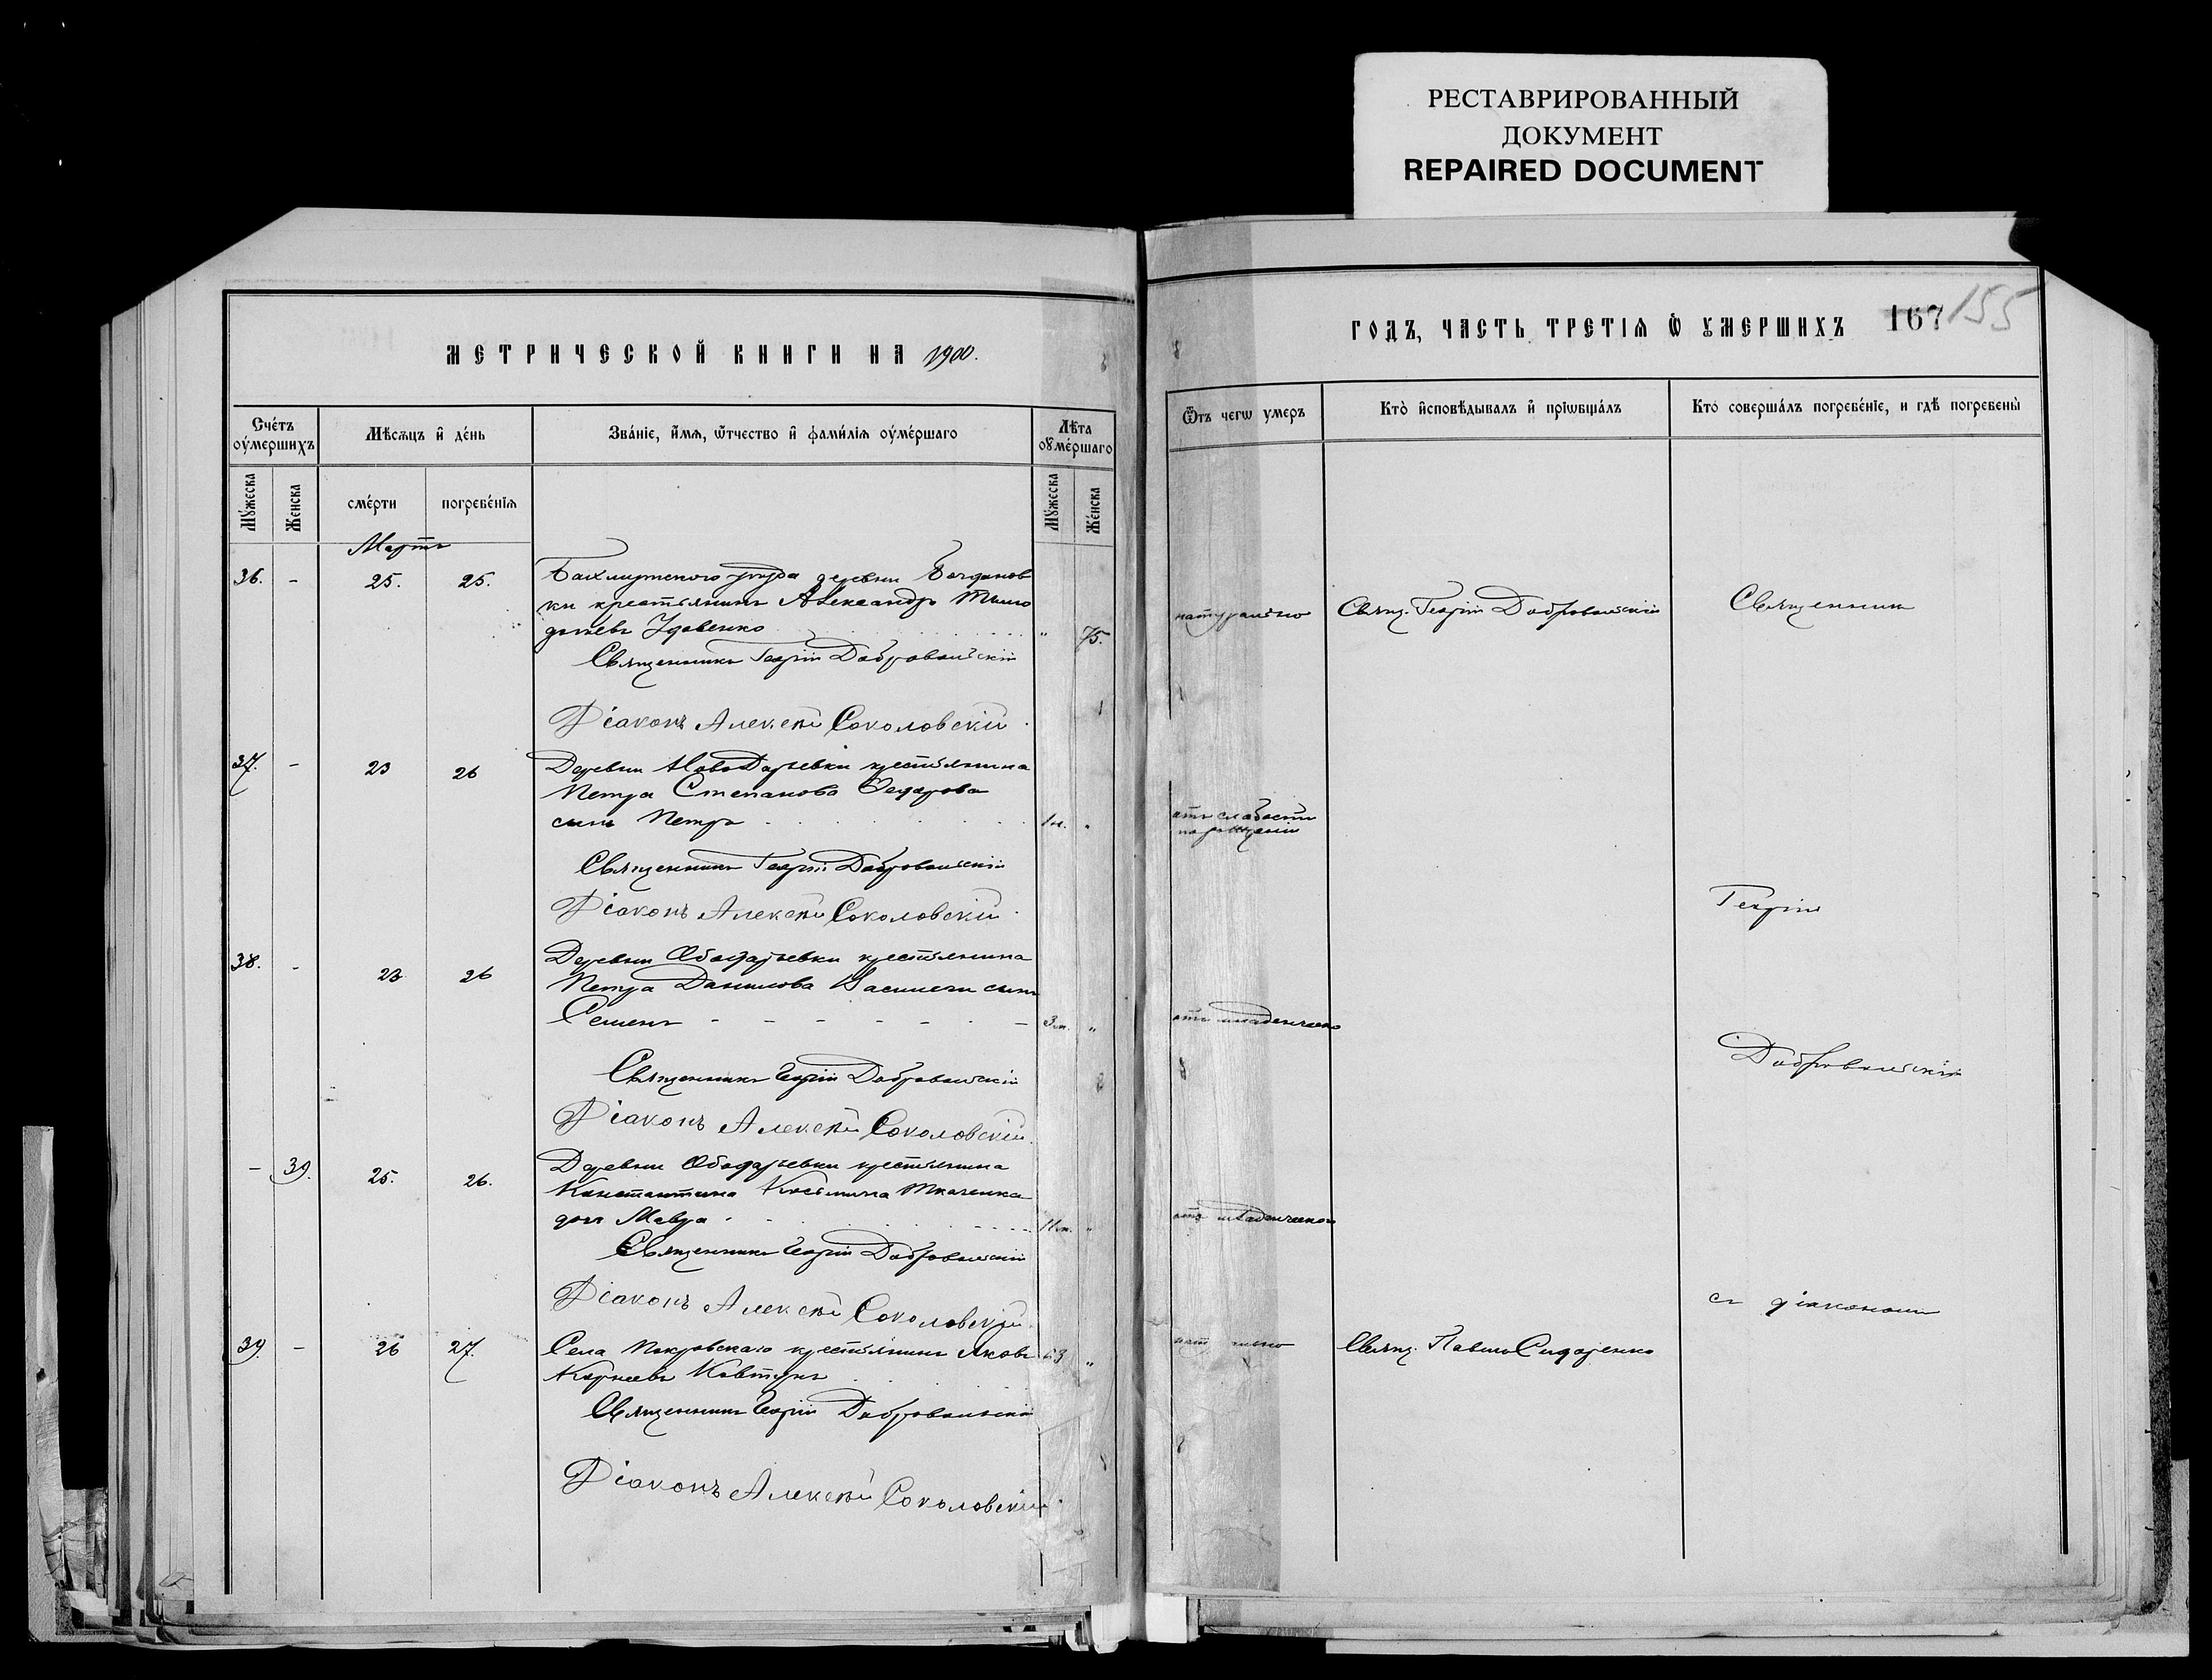 РЕСТАВРИРОВАННЫЙ
ДОКУМЕНТ
REPAIRED DOCUMENT
МЕТРИЧЕСКОЙ КНИГИ НА 1900.
Счетъ оумершихъ
Мѣсяцъ и день
Званіе, имя, ѿтчество и фамилія оумершаго
Лѣта оумершаго
Мужеска
Женска
смерти
погребенія
Мужеска
Женска
Мартъ
36. - 25. 25. Бахмутскаго уѣзда деревни Богданов
ки крестьянинъ Александръ
Удовенко " 75.
Священникъ Георгій Добровольскій
Діаконъ Алексѣй Соколовскій.
37. - 23 26 Деревни НовоДарьевки крестьянина
Петра Степанова Федорова
сынъ Петръ 1 н. "
Священникъ Георгій Добровольскій
Діаконъ Алексѣй Соколовскій.
38. - 23 26 Деревни крестьянина
Петра Данилова сынъ
Семенъ - - - - - - - 3 м. "
Священникъ Георгій Добровольскій
Діаконъ Алексѣй Соколовскій.
- 39. 25. 26. Деревни крестьянина
Константина Косьмина Ткаченка
дочь Мавра 11 м. "
Священникъ Георгій Добровольскій
Діаконъ Алексѣй Соколовскій.
39. - 26 27. Села Покровскаго крестьянинъ Яковъ 63 "
Корнеевъ Ковтунъ
Священникъ Георгій Добровольскій
Діаконъ Алексѣй Соколовскій.
ГОДЪ, ЧАСТЬ ТРЕТІЯ Ѡ УМЕРШИХЪ 167 155
Ѿтъ чегѡ умеръ
Кто исповѣдывалъ и пріѡбщалъ
Кто совершалъ погребеніе, и гдѣ погребены
натурально Свящ. Георгій Добровольскій Священник
отъ слабости
по рожденіи
Георгій
отъ младенческой
Добровольскій
отъ младенческой
съ діакономъ
Свящ. Павелъ Сидоренко